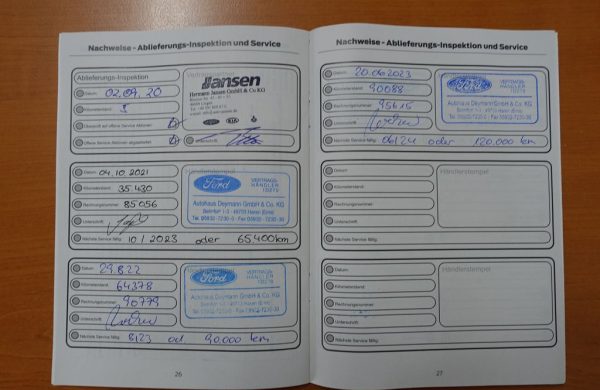 Nachweise - Ablieferungs-Inspektion und Service
Ablieferungs-Inspektion
Datum: 02.09.20
Kilometerstand: 8
Überprüft auf offene Service-Aktionen
Offene Service-Aktionen abgearbeitet
Unterschrift
Jansen
Hermann Jansen GmbH & Co. KG
Datum: 04.10.2021
Kilometerstand: 35.430
Rechnungsnummer: 85056
Unterschrift:
Nächste Service fällig: 10/2023 oder 65400km
Händlerstempel
Ford
VERTRAGS-
HÄNDLER
Autohaus Deymann GmbH & Co. KG
Datum: 29.8.22
Kilometerstand: 64378
Rechnungsnummer: 90779
Unterschrift:
Nächste Service fällig: 8/23 od. 90.000 km
Ford
VERTRAGS-
HÄNDLER
Autohaus Deymann GmbH & Co. KG
26
Nachweise - Ablieferungs-Inspektion und Service
Datum: 20.06.2023
Kilometerstand: 90088
Rechnungsnummer: 95615
Unterschrift:
Nächste Service fällig: 06/24 oder 120.000 km
Ford
VERTRAGS-
HÄNDLER
Autohaus Deymann GmbH & Co. KG
Datum:
Kilometerstand:
Rechnungsnummer:
Unterschrift:
Nächste Service fällig:
Händlerstempel
Datum:
Kilometerstand:
Rechnungsnummer:
Unterschrift:
Nächste Service fällig:
Händlerstempel
27